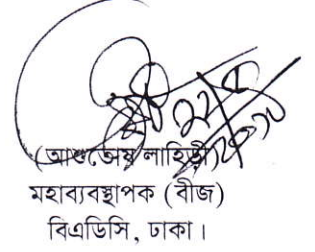 (আশুতোষ লাহিড়ী)
মহাব্যবস্থাপক (বীজ)
বিএডিসি, ঢাকা।